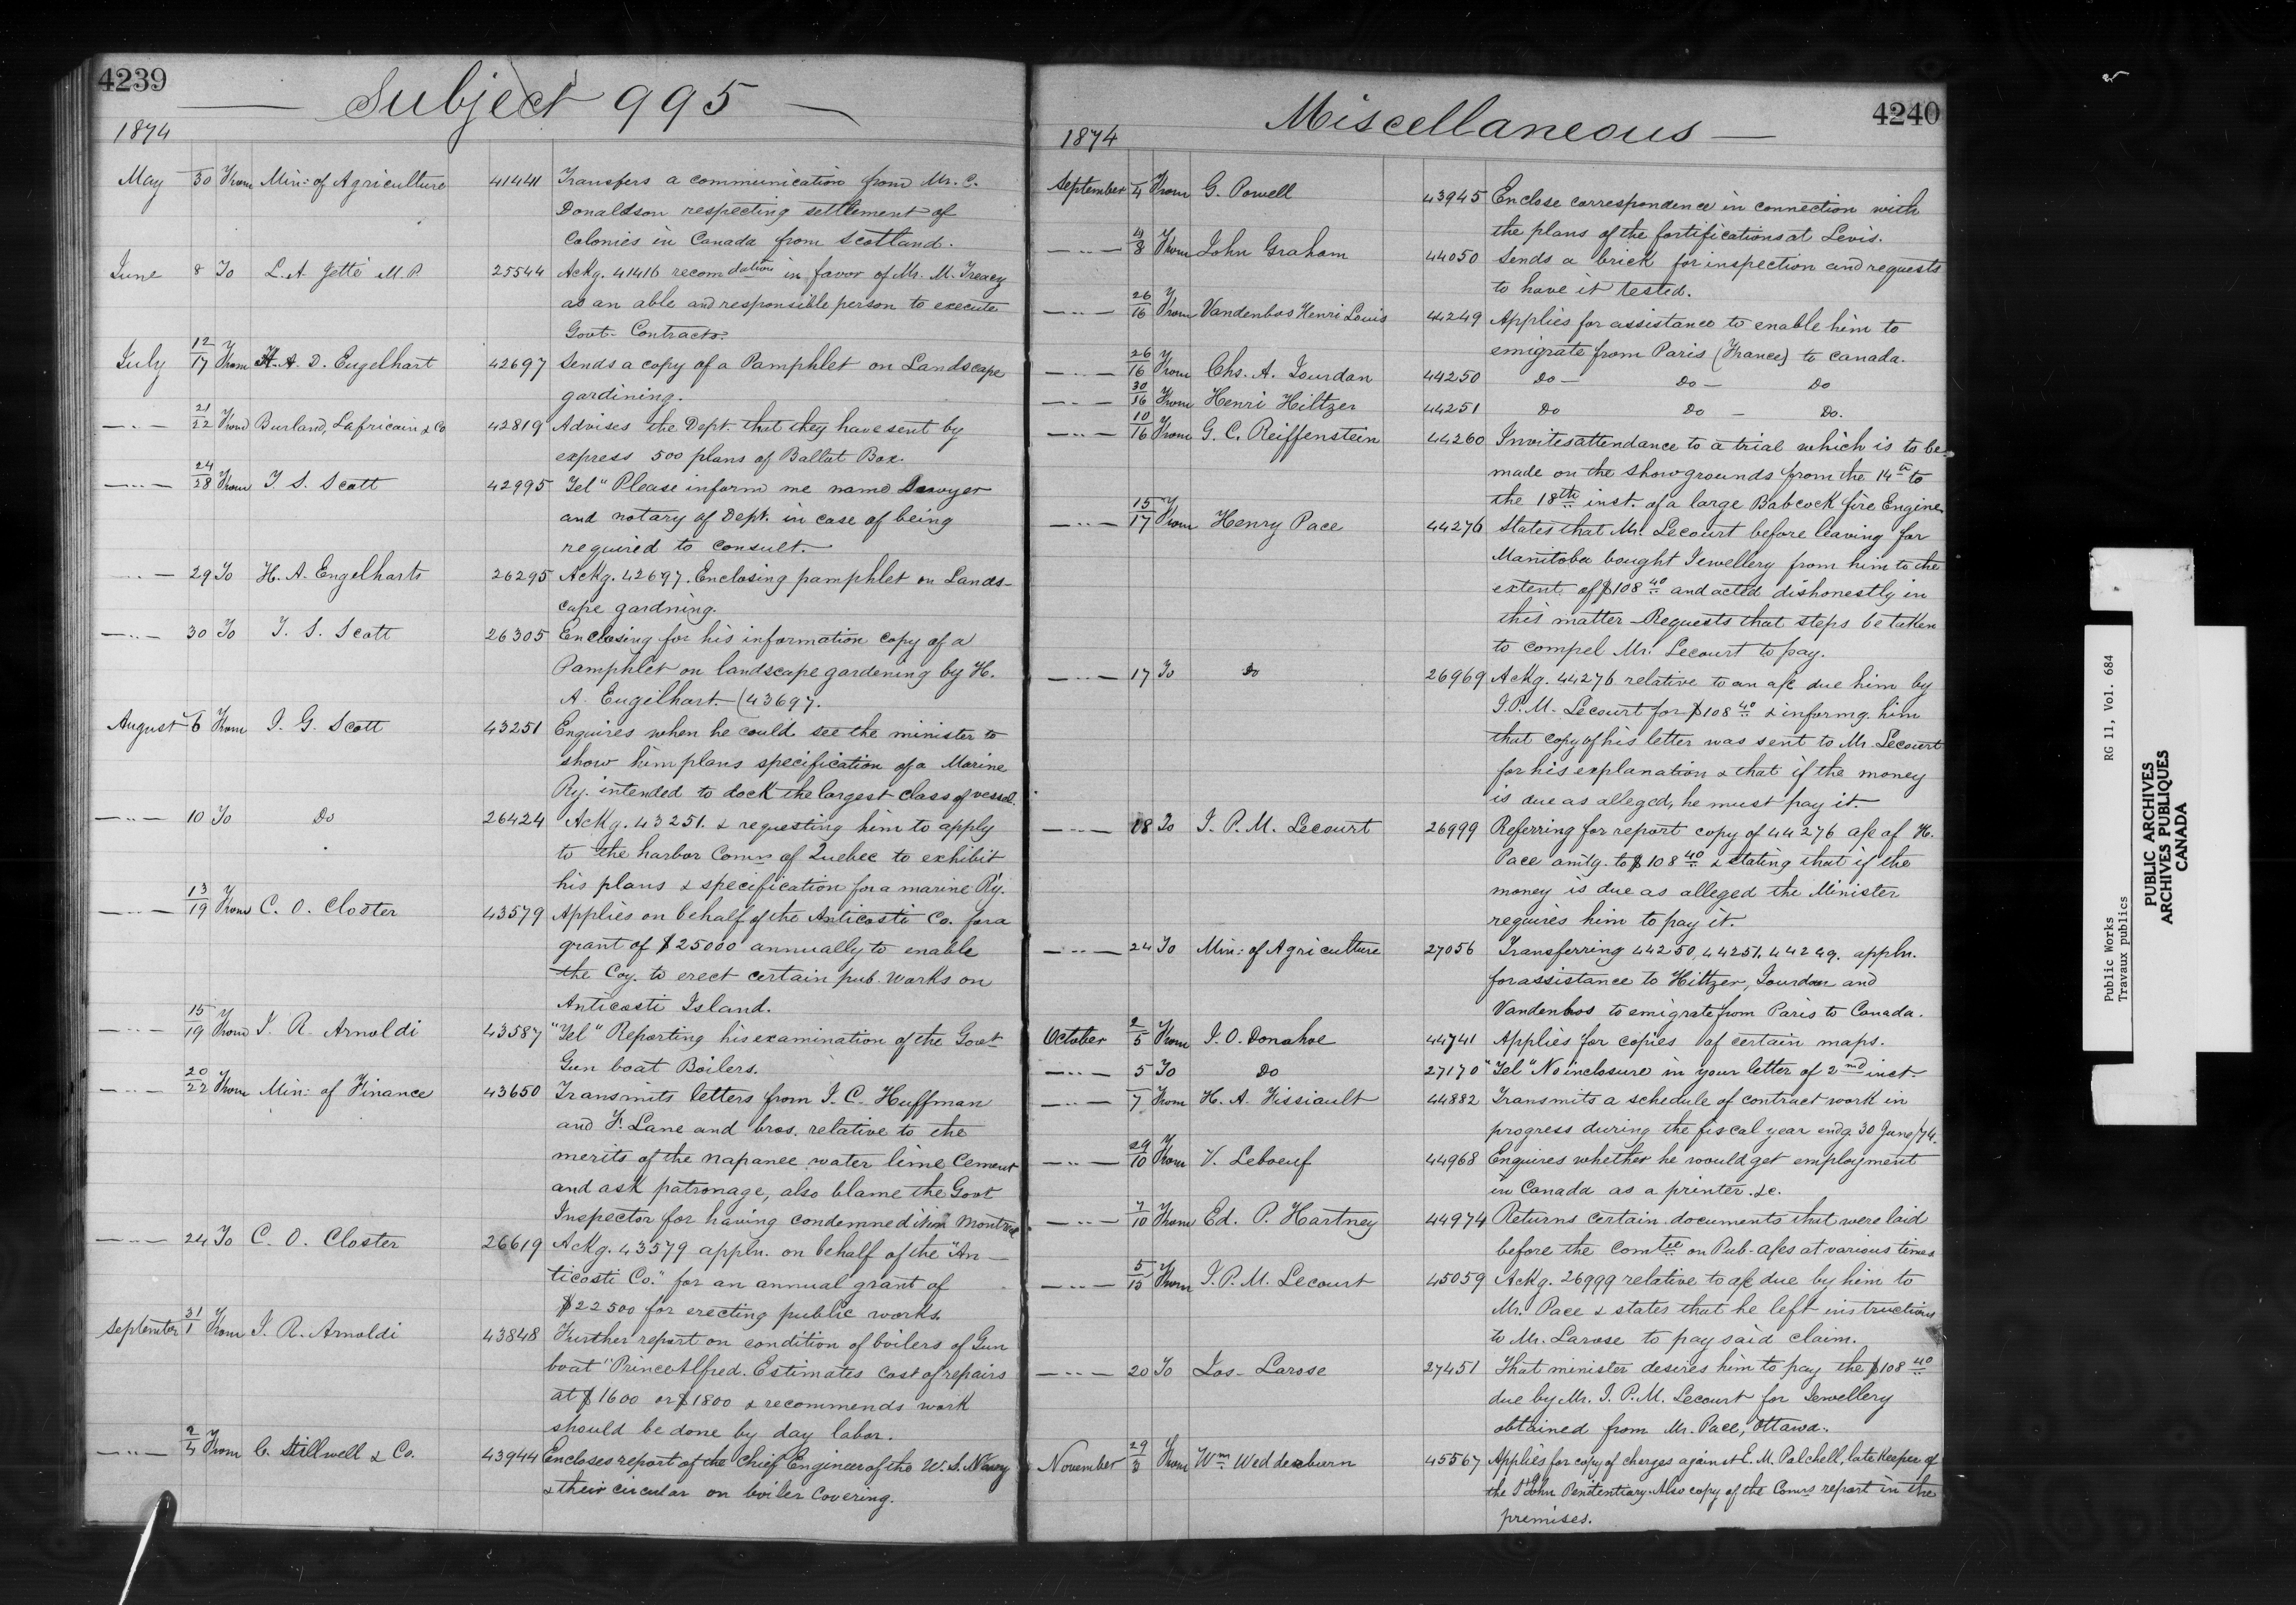 4239
Subject 995
1874
May 30 From Min: of Agriculture 41441 Transfers a communication from Mr. C.
Donaldson respecting settlement of
Colonies in Canada from Scotland.
June 8 To L. A. Jetté M.P. 25544 Ackg. 41416 recomdation in favor of Mr. M. Treacy
as an able and responsible person to execute
Govt. Contracts.
July 12/17 From H. A. D. Engelhart 42697 Sends a copy of a Pamphlet on Landscape
gardining.
—"— 21/22 From Burland, Lafricain & Co 42819 Advises the Dept. that they have sent by
express 500 plans of Ballot Box.
—"— 24/28 From T. S. Scott 42995 Tel " Please inform me name Lawyer
and notary of Dept. in case of being
required to consult.
—"— 29 To H. A. Engelharts 26295 Ackg. 42697. Enclosing pamphlet on Lands-
cape gardning.
—"— 30 To T. S. Scott 26305 Enclosing for his information copy of a
Pamphlet on landscape gardening by H.
A. Engelhart. (43697.
August 6 From J. G. Scott 43251 Enquires when he could see the minister to
show him plans specification of a Marine
Ry. intended to dock the largest class of vessel.
—"— 10 To Do 26424 Ackg. 43251. & requesting him to apply
to the harbor Comrs of Quebec to exhibit
his plans & specification for a marine Ry.
—"— 13/19 From C. O. Closter 43579 Applies on behalf of the Anticosti Co. for a
grant of $25000 annually to enable
the Coy. to erect certain pub. works on
Anticosti Island.
—"— 15/19 From J. R. Arnoldi 43587 "Tel" Reporting his examination of the Govt
Gun boat Boilers.
—"— 20/22 From Min: of Finance 43650 Transmits letters from J. C. Huffman
and F. Lane and bros. relative to the
merits of the napanee water lime Cement
and ask patronage, also blame the Govt
Inspector for having condemned it in Montreal
—"— 24 To C. O. Closter 26619 Ackg. 43579 appln. on behalf of the "An-
ticosti Co." for an annual grant of
$22500 for erecting public works.
September 31/1 From J. R. Arnoldi 43848 Further report on condition of boilers of Gun
boat "Prince Alfred. Estimates cost of repairs
at $1600 or $1800 & recommends work
should be done by day labor.
—"— 2/4 From C. Stillwell & Co. 43944 Encloses report of the Chief Engineer of the U. S. Navy
& their circular on boiler Covering.
4240
Miscellaneous
1874
September 4 From G. Powell 43945 Enclose correspondence in connection with
the plans of the fortifications at Levis.
—"— 4/8 From John Graham 44050 Sends a brick for inspection and requests
to have it tested.
—"— 26/16 From Vandenbos Henri Louis 44249 Applies for assistance to enable him to
emigrate from Paris (France) to Canada.
—"— 26/16 From Chs. A. Jourdan 44250 Do — Do — Do
—"— 30/16 From Henri Hiltzer 44251 Do Do — Do.
—"— 10/16 From G. C. Reiffenstein 44260 Invites attendance to a trial which is to be
made on the show grounds from the 14th to
the 18th inst. of a large Babcock fire Engine
—"— 15/17 From Henry Pace 44276 States that Mr. Lecourt before leaving for
Manitoba bought Jewellery from him to the
extent of $108 40 and acted dishonestly in
this matter Requests that steps be taken
to compel Mr. Lecourt to pay.
—"— 17 To Do 26969 Ackg. 44276 relative to an a/c due him by
J. P. M. Lecourt for $108 40 & informg. him
that copy of his letter was sent to Mr. Lecourt
for his explanation & that if the money
is due as alleged, he must pay it.
—"— 18 To J. P. M. Lecourt 26999 Referring for report copy of 44276 a/c of H.
Pace amtg. to $108 40 & stating that if the
money is due as alleged the Minister
requires him to pay it.
—"— 24 To Min: of Agriculture 27056 Transferring 44250, 44251, 44249. appln.
for assistance to Hiltzer, Jourdan and
Vandenbos to emigrate from Paris to Canada.
October 2/5 From J. O. Donahoe 44741 Applies for copies of certain maps.
—"— 5 To Do 27170 "Tel" No inclosure in your letter of 2nd inst.
—"— 7 From H. A. Fissiault 44882 Transmits a schedule of contract work in
progress during the fiscal year endg. 30 June/74.
—"— 29/10 From V. Leboeuf 44968 Enquires whether he would get employment
in Canada as a printer. &c.
—"— 7/10 From Ed. P. Hartney 44974 Returns certain documents that were laid
before the Comtee on Pub. a/cs at various times
—"— 5/15 From J. P. M. Lecourt 45059 Ackg. 26999 relative to a/c due by him to
Mr. Pace & states that he left instructions
to Mr. Larose to pay said claim.
—"— 20 To Jos. Larose 27451 That minister desires him to pay the $108 40
due by Mr. J. P. M. Lecourt for Jewellery
obtained from Mr. Pace, Ottawa.
November 29/3 From Wm Wedderburn 45567 Applies for copy of charges against E. M. Palchell, late Keeper of
the St John Penitentiary. Also copy of the Comrs report in the
premises.
Public Works RG 11, Vol. 684
Travaux publics
PUBLIC ARCHIVES
ARCHIVES PUBLIQUES
CANADA